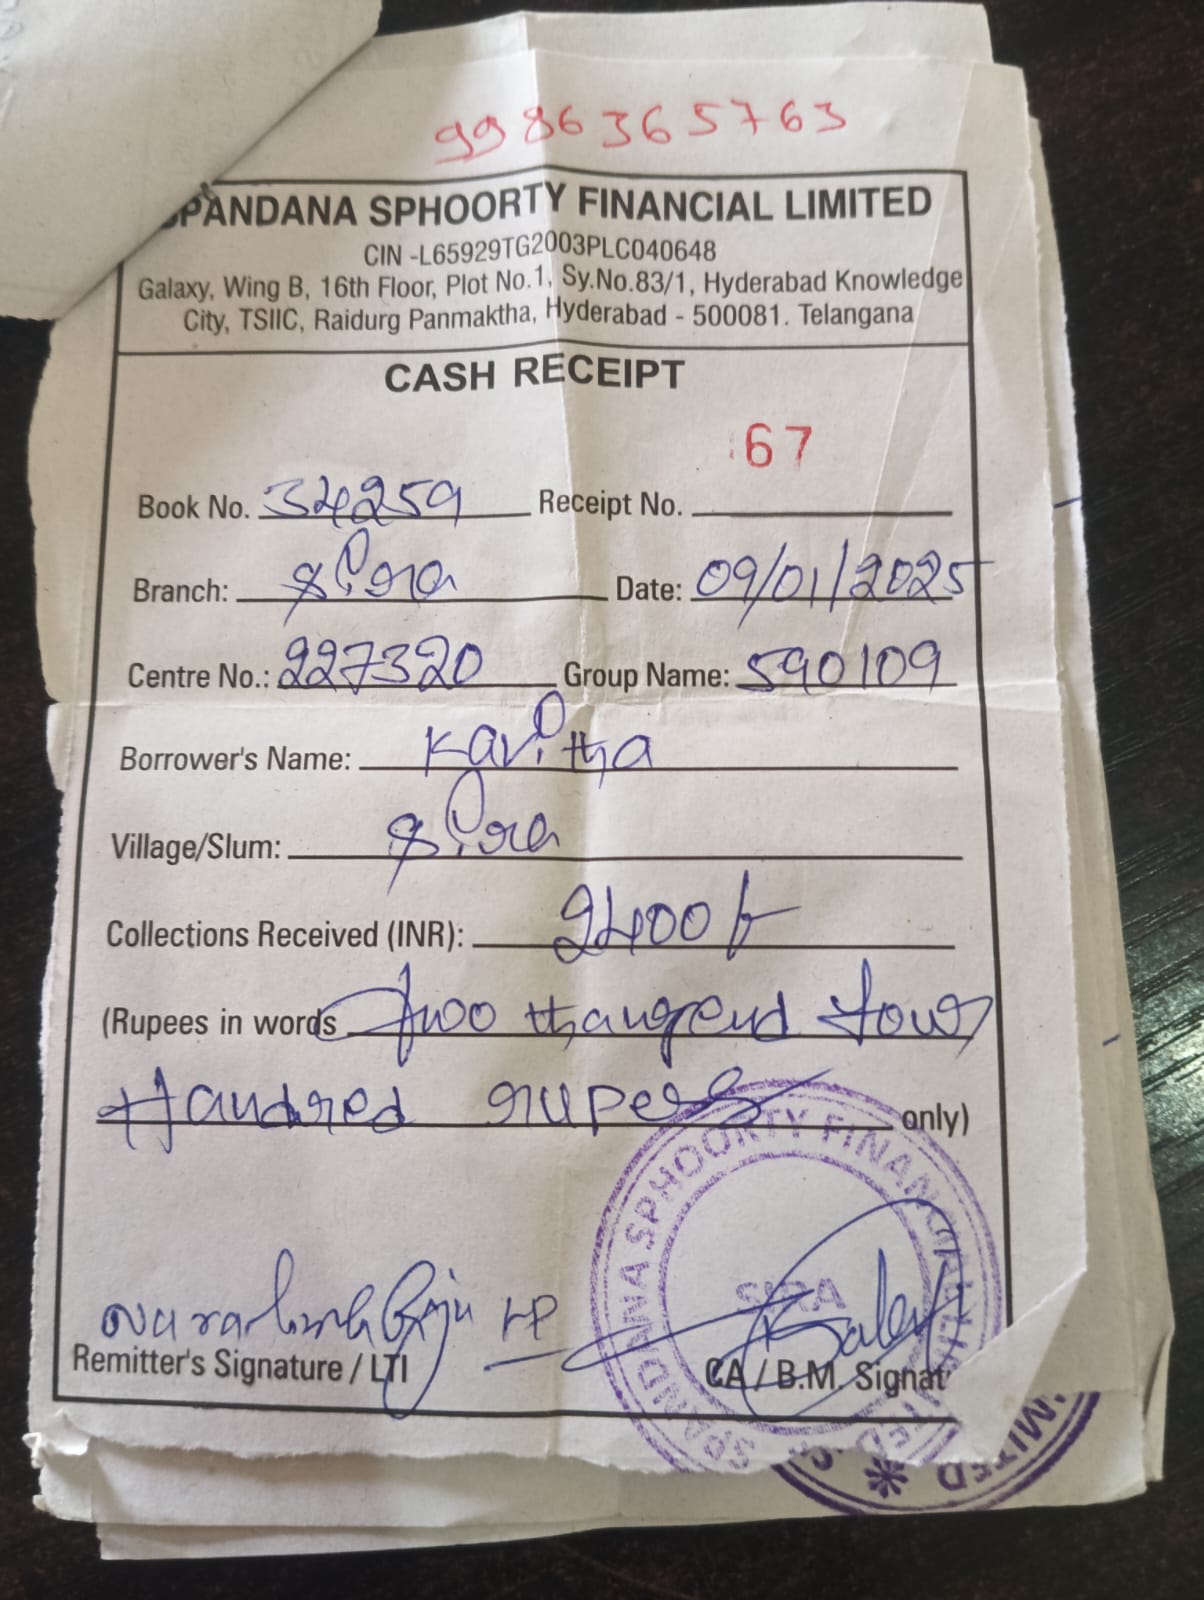 9986365763
SPANDANA SPHOORTY FINANCIAL LIMITED
CIN -L65929TG2003PLC040648
Galaxy, Wing B, 16th Floor, Plot No.1, Sy.No.83/1, Hyderabad Knowledge
City, TSIIC, Raidurg Panmaktha, Hyderabad - 500081. Telangana
CASH RECEIPT
67
Book No. 34259 Receipt No.
Branch: Sira Date: 09/01/2025
Centre No.: 227320 Group Name: 590109
Borrower's Name: Kavitha
Village/Slum: Sira
Collections Received (INR): 2400/-
(Rupees in words Two thangend four
Handred rupees only)
SPANDANA SPHOORTY FINANCIAL LIMITED
SIRA
Remitter's Signature / LTI CA / B.M. Signat
MITED